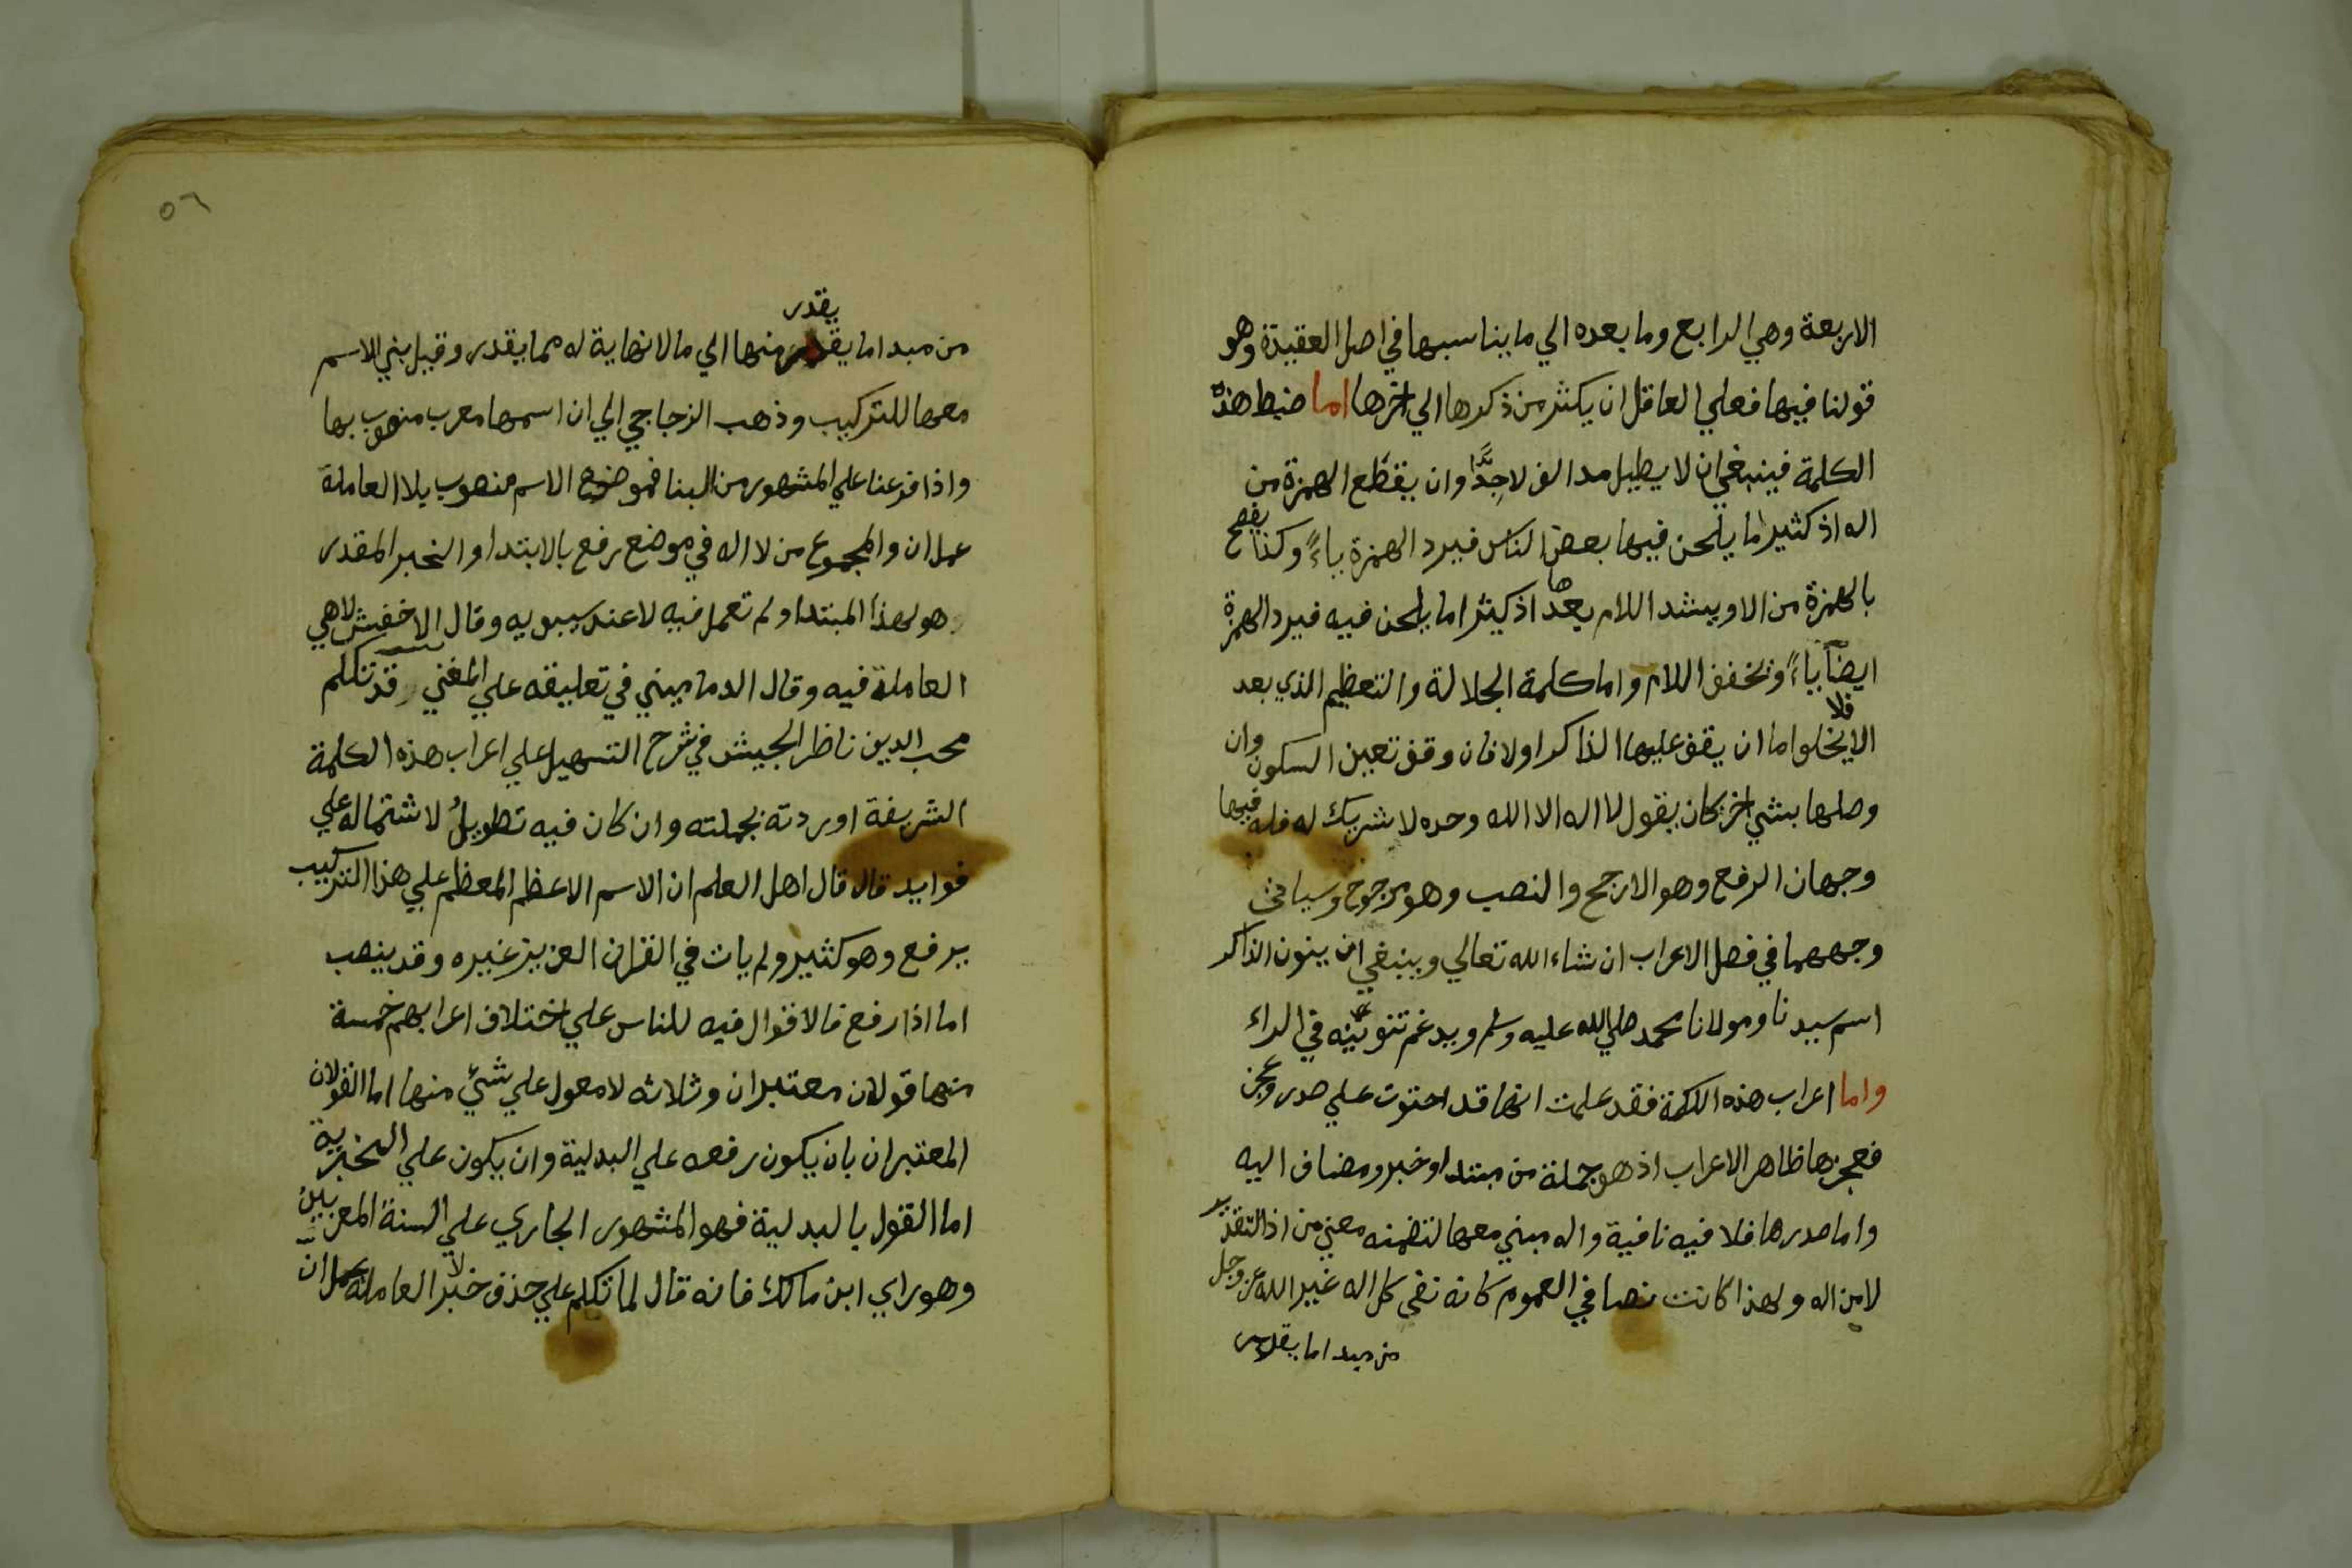 الاربعة وهي الرابع وما بعده الي ما يناسبها في اصل العقيدة وهو
قولنا فيها فعلي العاقل ان يكثر من ذكرها الي اخرها اما ضبط هذه
الكلمة فينبغي ان لا يطيل مد الف لا جدًّا وان يقطع الهمزة من
اله اذ كثيرا ما يلحن فيها بعض الناس فيرد الهمزة ياءً وكذا يفصح
بالهمزة من الا ويشد اللام بعدها اذ كثيرا ما يلحن فيه فيرد الهمزة
ايضًا ياءً وتخفف اللام واما كلمة الجلالة والتعظيم الذي بعد
الا فلا يخلوا اما ان يقف عليها الذاكر اولا فان وقف تعين السكون وان
وصلها بشي اخر كان يقول لا اله الا الله وحده لا شريك له فله فيها
وجهان الرفع وهو الارجح والنصب وهو مرجوح وسياتي
وجههما في فصل الاعراب ان شاء الله تعالي وينبغي ان ينون الذاكر
اسم سيدنا ومولانا محمد صلي الله عليه وسلم ويدغم تنوينه في الراء
واما اعراب هذه الكلمة فقد علمت انها قد احتوت علي صدر وعجز
فعجزها ظاهر الاعراب اذ هو جملة من مبتدا وخبر ومضاف اليه
واما صدرها فلا فيه نافية واله مبني معها لتضمنه معني من اذ التقدير
لا من اله ولهذا كانت نصا في العموم كانه نفي كل اله غير الله عز وجل
من مبدا ما يقدر
٥٦
يقدر
من مبدا ما يقدر منها الي ما لا نهاية له مما يقدر وقيل بني الاسم
معها للتركيب وذهب الزجاجي الي ان اسمها معرب منصوب بها
واذا فرعنا علي المشهور من البنا فموضع الاسم منصوب بلا العاملة
عمل ان والمجموع من لا اله في موضع رفع بالابتدا والخبر المقدر
هو لهذا المبتدا ولم تعمل فيه لا عند سيبويه وقال الاخفش لا هي
العاملة فيه وقال الدماميني في تعليقه علي المغني وقد تكلم
محب الدين ناظر الجيش في شرح التسهيل علي اعراب هذه الكلمة
الشريفة اوردته بجملته وان كان فيه تطويلٌ لاشتماله علي
فوايد قال قال اهل العلم ان الاسم الاعظم المعظم علي هذا التركيب
يرفع وهو كثير ولم يات في القران العزيز غيره وقد ينصب
اما اذا رفع فالاقوال فيه للناس علي اختلاف اعرابهم خمسة
منها قولان معتبران وثلاثه لا معول علي شيٍ منها اما القولان
المعتبران بان يكون رفعه علي البدلية وان يكون علي الخبرية
اما القول بالبدلية فهو المشهور الجاري علي السنة المعربين
وهو راي ابن مالك فانه قال لما تكلم علي حذف خبر لا العاملة عمل ان